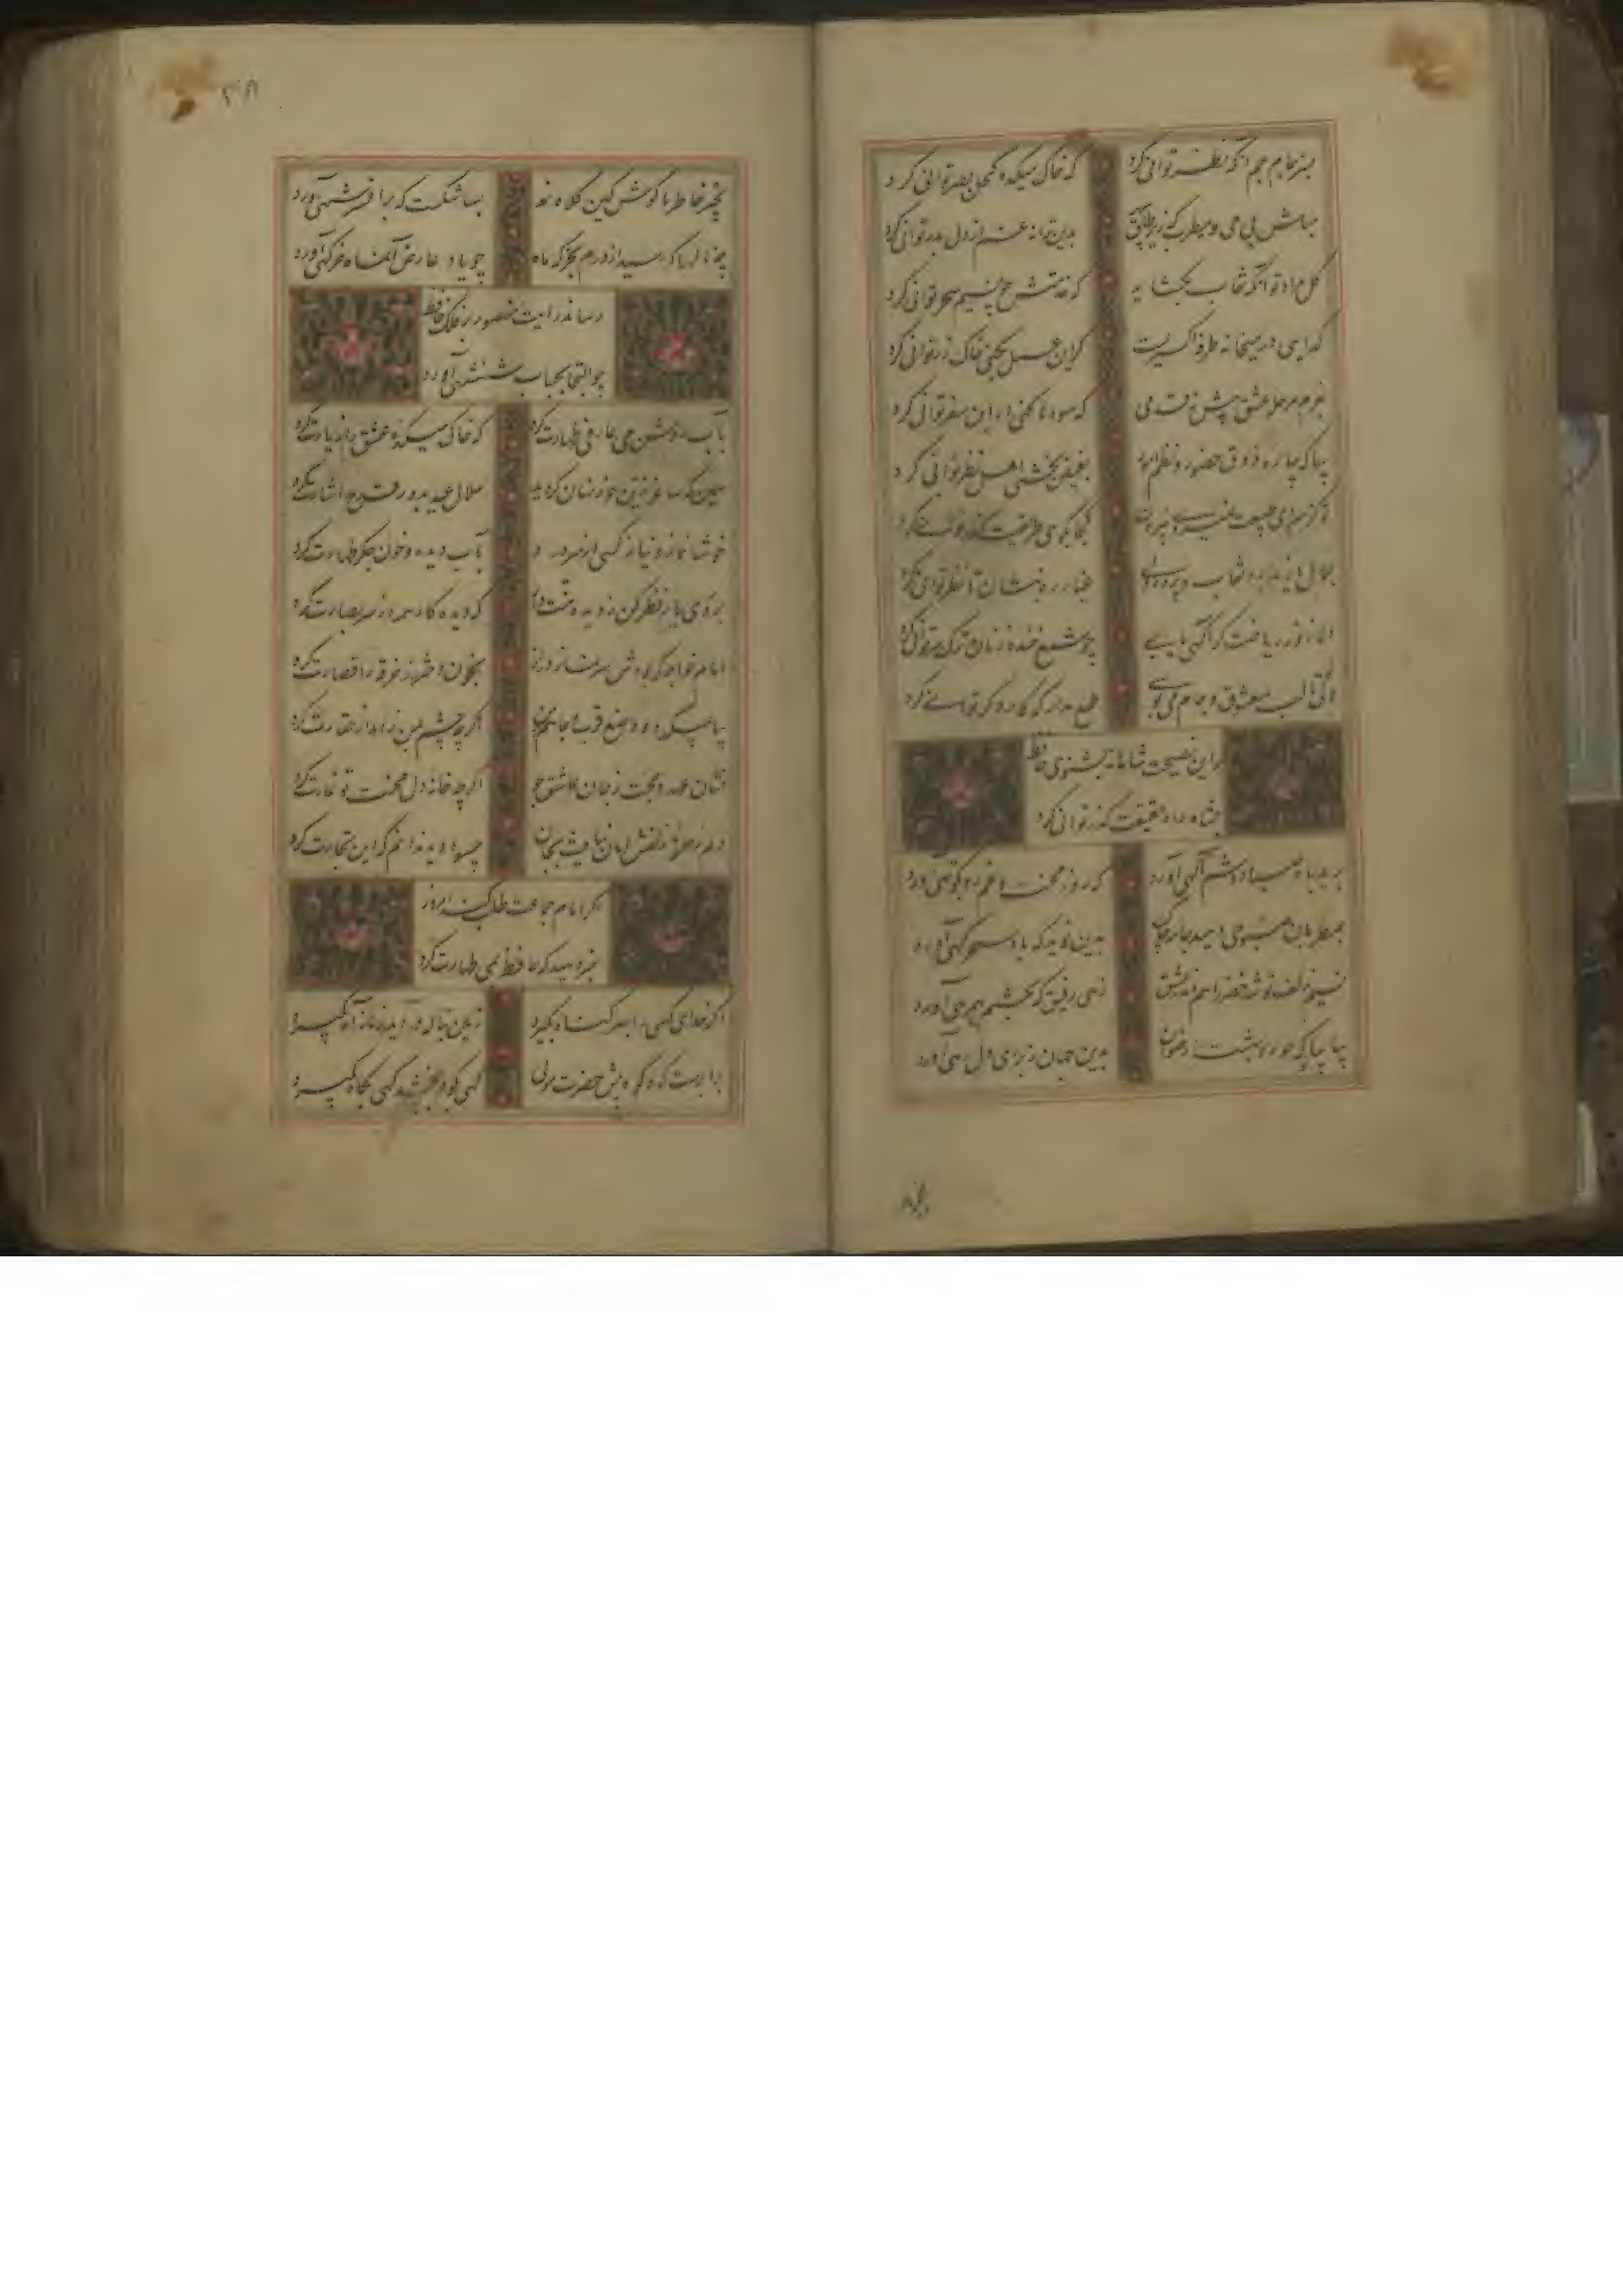 بسر جام جم آنکه نظر توانی کرد
که خاک میکده کحل بصر توانی کرد
مباش بی می و مطرب که زیر طاق
بدین ترانه غم از دل بدر توانی کرد
گل مراد تو آنگه نقاب بگشاید
که خدمتش چو نسیم سحر توانی کرد
گدایی در میخانه طرفه اکسیریست
گر این عمل بکنی خاک زر توانی کرد
بعزم مرحله عشق پیش نه قدمی
که سودها کنی ار این سفر توانی کرد
بیا که چاره ذوق حضور و نظم امور
بفیض بخشی اهل نظر توانی کرد
تو کز سرای طبیعت نمیروی بیرون
کجا بکوی طریقت گذر توانی کرد
جمال یار ندارد نقاب و پرده ولی
غبار ره بنشان تا نظر توانی کرد
دلا ز نور ریاضت گر آگهی یابی
چو شمع خنده زنان ترک سر توانی کرد
ولی تا لب معشوق و جام می
طمع مدار که کار دگر توانی کرد
گر این نصیحت شاهانه بشنوی حافظ
بشاه راه حقیقت گذر توانی کرد
برید باد صبا دوشم آگهی آورد
که روز محنت و غم رو بکوتهی آورد
بمطربان صبوحی دهیم جامه چاک
بدین نوید که باد سحرگهی آورد
نسیم زلف تو شد خضر راهم اندر عشق
زهی رفیق که بختم بهمرهی آورد
بیا بیا که تو حور بهشت را رضوان
بدین جهان ز برای دل رهی آورد
۳۸
بجبر خاطر ما کوش کین کلاه نمد
بسا شکست که بر افسر شهی آورد
چه نالها که رسید از دلم بخرگه ماه
چو یاد عارض آن ماه خرگهی آورد
رساند رایت منصور بر فلک حافظ
چو التجا بجناب شهنشهی آورد
بآب روشن می عارفی طهارت کرد
که خاک میکده عشق را زیارت کرد
همین که ساغر زرین خور نهان گردید
هلال عید بدور قدح اشارت کرد
خوشا نماز و نیاز کسی که از سر درد
بآب دیده و خون جگر طهارت کرد
بروی یار نظر کن ز دیده منت دار
که دیده کار همه از سر بصارت کرد
امام خواجه که بودش سر نماز دراز
بخون دختر رز خرقه را قصارت کرد
بیا بمیکده و وضع قرب و جاهم بین
اگر چه چشم بمن زاهد از حقارت کرد
نشان عهد و محبت ز جان عاشق جو
اگر چه خانه دل محنت تو غارت کرد
دلم ز حلقه زلفش امان نیافت بجان
چه سود دید ندانم که این تجارت کرد
اگر امام جماعت طلب کند امروز
خبر دهید که حافظ بمی طهارت کرد
اگر خدای کسی را بهر گناه بگیرد
زمین بناله در آید زمانه آه بگیرد
برابرست که و کوه پیش حضرت مولی
گهی کوه ببخشد گهی بکاه بگیرد